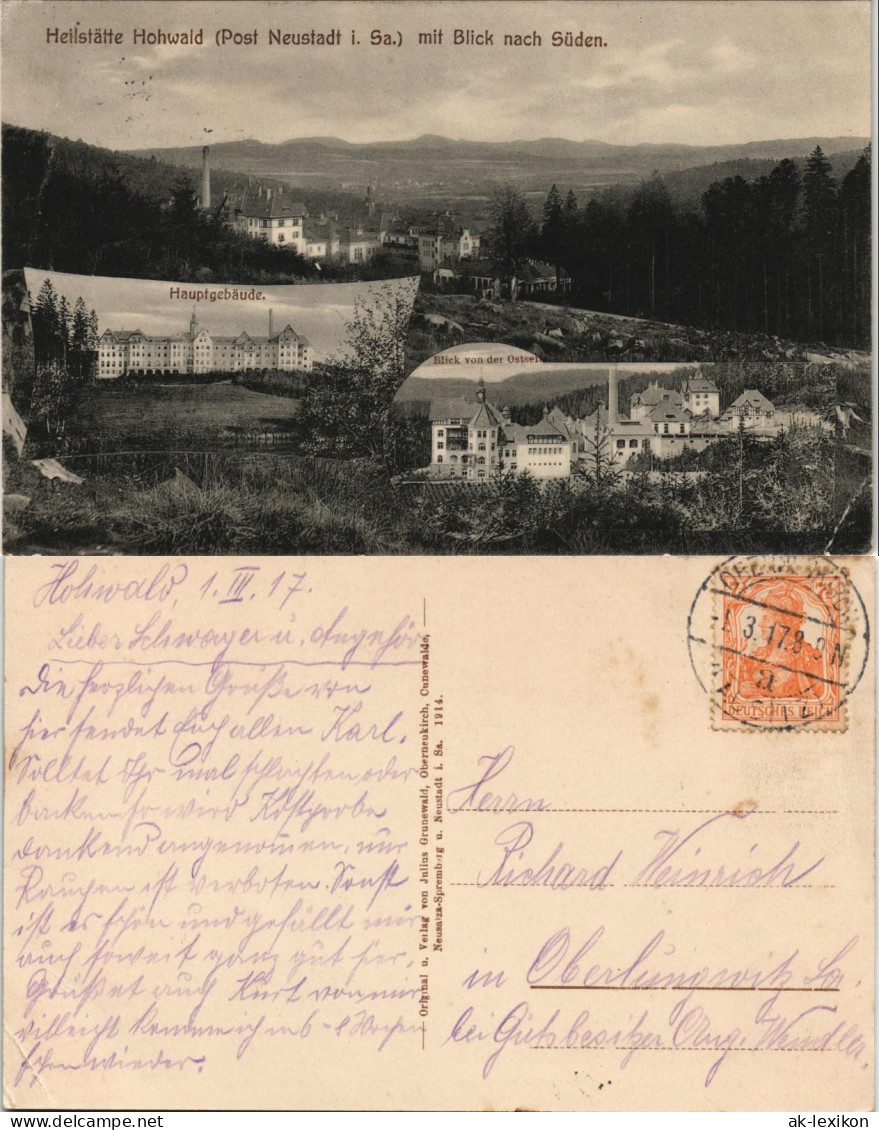 Heilstätte Hohwald (Post Neustadt i. Sa.) mit Blick nach Süden.
Hauptgebäude.
Blick von der Ostsei
Hohwald, 1. III. 17.
Lieber Schwager u. Angehör
Die herzlichen Grüße von
hier sendet Euch allen Karl.
Solltet Ihr mal schlachten oder
backen so wird Kostprobe
dankend angenommen, nur
Rauchen ist verboten. Sonst
ist es schön und gefällt mir
auch soweit ganz gut hier.
Grüßet auch Kurt von mir
villeicht komme ich in 6-8 Wochen
schon wieder.
Original u. Verlag von Julius Grunewald, Oberneukirch, Cunewalde,
Neusalza-Spremberg u. Neustadt i. Sa. 1914.
1.3.17.8-9N
a
DEUTSCHES REICH
Herrn
Richard Heinrich
in Oberlungwitz Sa.
bei Gutsbesitzer Aug. Wendler.
ak-lexikon